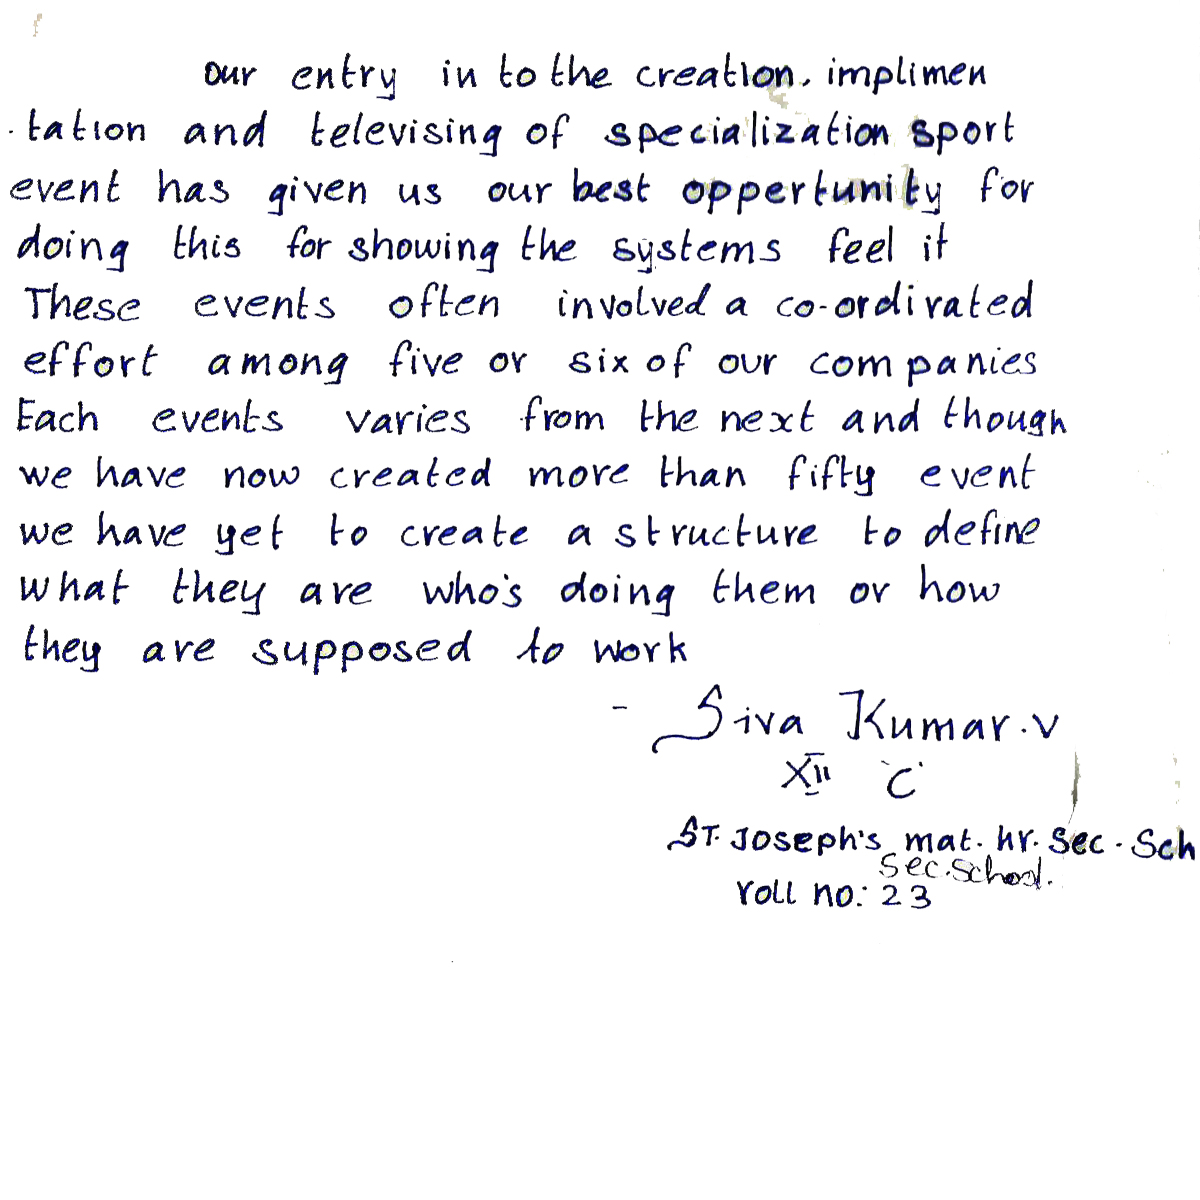 our entry in to the creation. implimen
tation and televising of specialization sport
event has given us our best oppertunity for
doing this for showing the systems feel it
These events often involved a co-ordirated
effort among five or six of our companies
Each events varies from the next and though
we have now created more than fifty event
we have yet to create a structure to define
what they are who's doing them or how
they are supposed to work
- Siva Kumar.V
XII 'C'
ST. Joseph's mat. hr. Sec. Sch
Sec. School.
roll no: 23